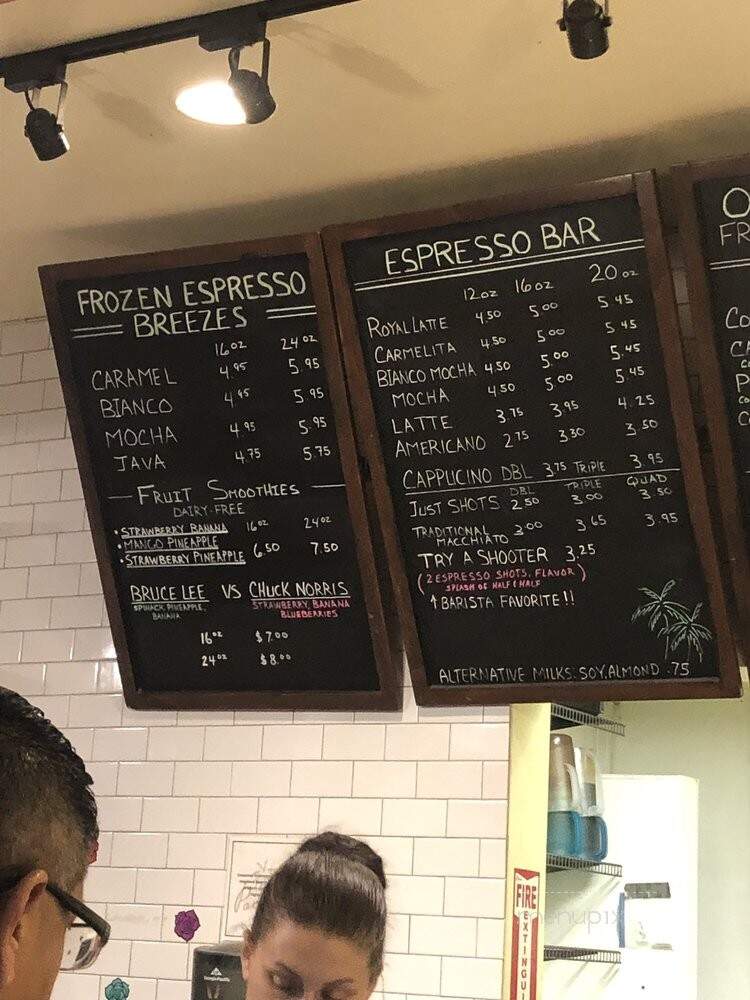 FROZEN ESPRESSO
BREEZES
16oz 24oz
CARAMEL 4.95 5.95
BIANCO 4.95 5.95
MOCHA 4.95 5.95
JAVA 4.75 5.75
FRUIT SMOOTHIES
DAIRY-FREE
• STRAWBERRY BANANA 16oz 24oz
• MANGO PINEAPPLE
• STRAWBERRY PINEAPPLE 6.50 7.50
BRUCE LEE VS CHUCK NORRIS
SPINACH, PINEAPPLE, STRAWBERRY, BANANA
BANANA BLUEBERRIES
16oz $7.00
24oz $8.00
ESPRESSO BAR
12oz 16oz 20oz
ROYAL LATTE 4.50 5.00 5.45
CARMELITA 4.50 5.00 5.45
BIANCO MOCHA 4.50 5.00 5.45
MOCHA 4.50 5.00 5.45
LATTE 3.75 3.95 4.25
AMERICANO 2.75 3.30 3.50
CAPPUCINO DBL 3.75 TRIPLE 3.95
DBL TRIPLE QUAD
JUST SHOTS 2.50 3.00 3.50
TRADITIONAL
MACCHIATO 3.00 3.65 3.95
TRY A SHOOTER 3.25
(2 ESPRESSO SHOTS, FLAVOR
SPLASH OF HALF & HALF)
↑ BARISTA FAVORITE!!
ALTERNATIVE MILKS: SOY, ALMOND .75
O
FR
CO
CA
P
CO
C
FIRE
EXTINGUI
Georgia-Pacific
menupix